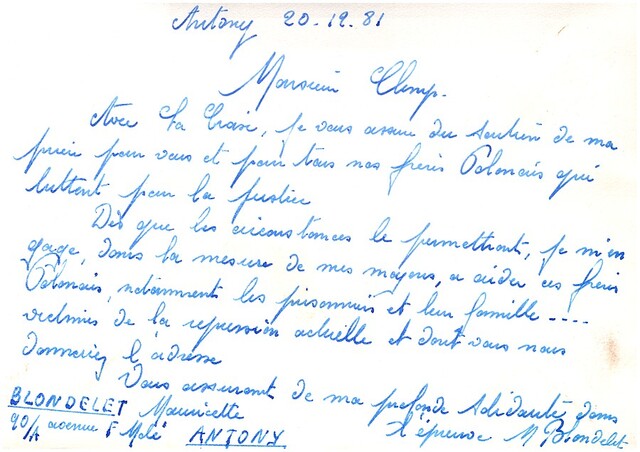 Antony 20.12.81
Monsieur Glemp.
Avec La Croix, je vous assure du soutien de ma
prière pour vous et pour tous nos frères Polonais qui
luttent pour la justice
Dès que les circonstances le permettront, je m'en
gage, dans la mesure de mes moyens, a aider ces frères
Polonais, notamment les prisonniers et leur famille ....
victimes de la repression actuelle et dont vous nous
donneriez l'adresse
Vous assurant de ma profonde solidarité dans
l'épreuve M Blondelet
BLONDELET Mauricette
90/A avenue F Molé ANTONY